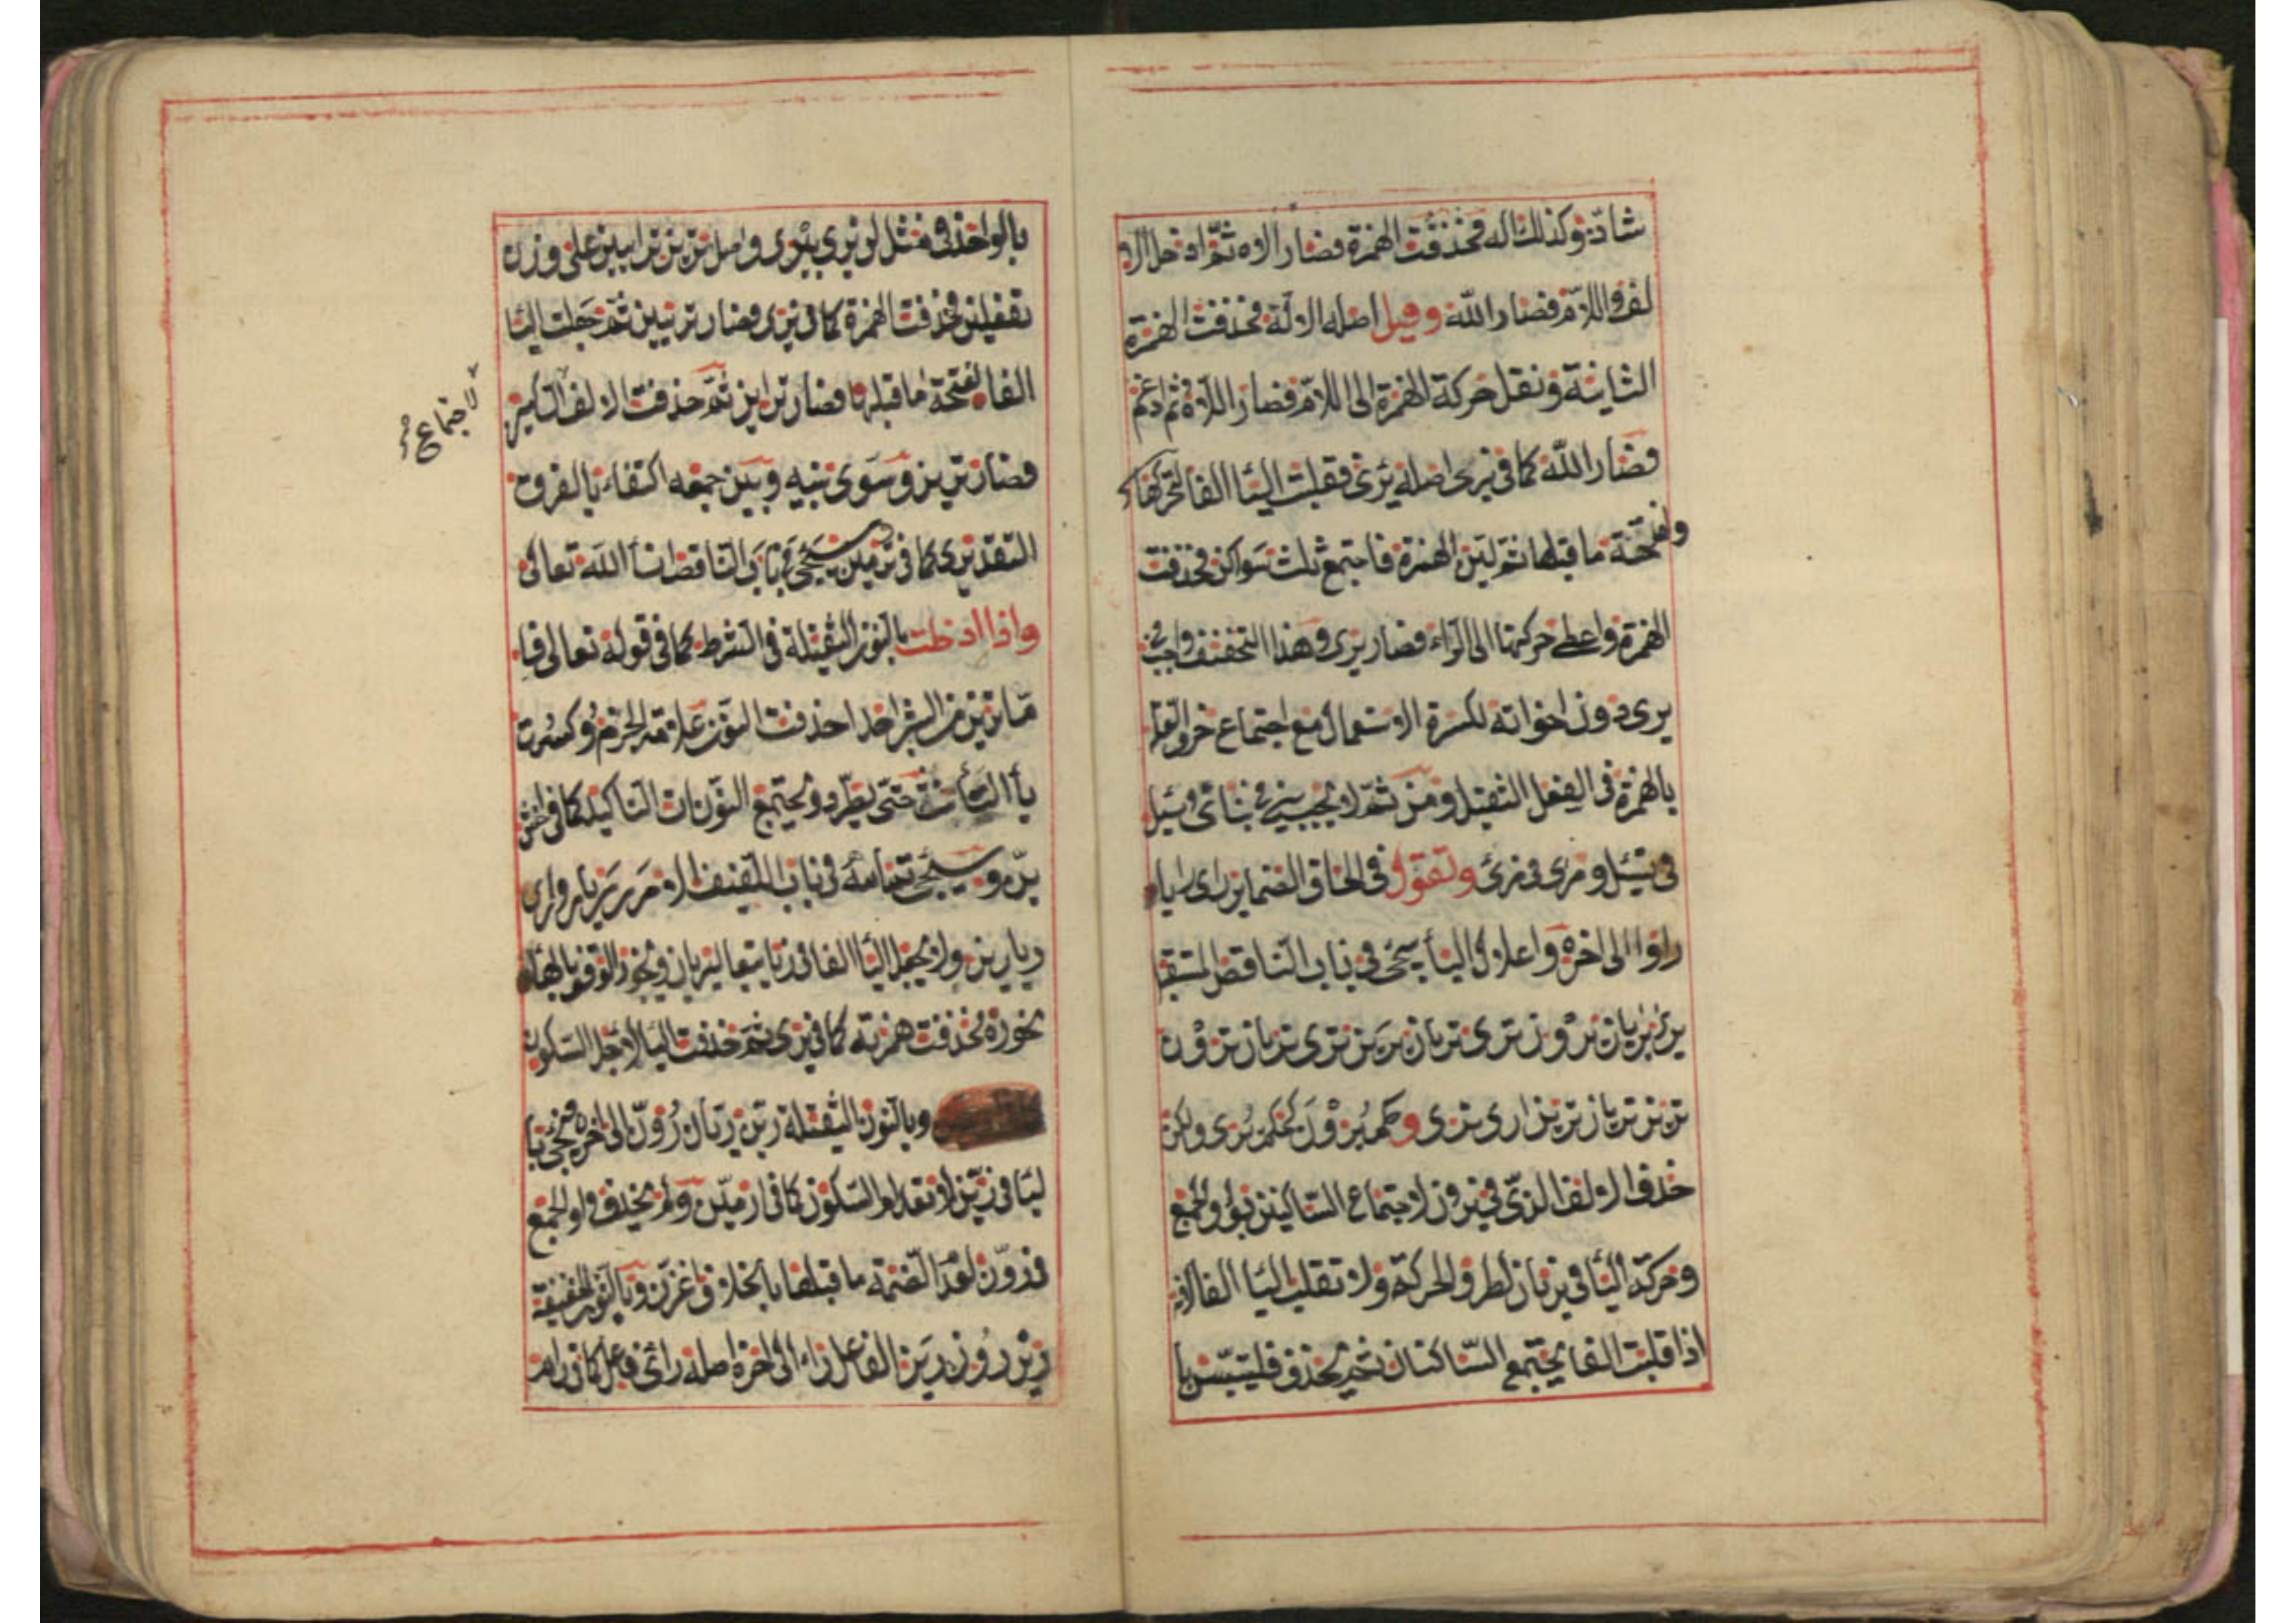 شاذ وكذلك اله فحذفت الهمزة فصار الاه ثم ادخل الا
لف واللام فصار الله وقيل اصله الاله فحذفت الهمزة
الثانية ونقل حركة الهمزة الى اللام فصار اللاه ثم ادغم
فصار الله كما في يرى اصله يرئي فقلبت اليا الفا لتحركها
وفتحة ما قبلها ثم لين الهمزة فاجتمع ثلث سواكن فحذفت
الهمزة واعطى حركتها الى الراء فصار يرى وهذا التخفيف واجب في
يرى دون اخواته لكسرة الاستعمال مع اجتماع حرف العلة
بالهمزة في الفعل الثقيل ومن ثم لا يجب ينئ في ينائ ويسل
في يسئل ومرى في مرئ وتقول في الحاق الضماير راى رايا
راوا الى اخره واعلال اليا سيجئ في باب الناقص المستقبل
يرى يريان يرون ترى تريان يرين ترى تريان ترون
ترين تريان ترين ارى نرى وحكم يرون كحكم يرى ولكن
حذف الالف الذي في يرون لاجتماع الساكنين بواو الجمع
وحركة اليا في يريان لطرو الحركة ولا تقلب اليا الفا لانه
اذا قلبت الفا يجتمع الساكنان ثم يحذف فليتبس با
بالواحد في مثل لن يرى يرى واصل ترين ترايين على وزن
تفعلين فحذفت الهمزة كما في يرى فصار تريين ثم جعلت اليا
الفا لفتحة ما قبلها فصار تراين ثم حذفت الالف
لاجتماع
فصار ترين وسوى بينه وبين جمعه اكتفاء بالفرق
التقديرى كما في ترمين سيجئ في باب الناقص انشأ الله تعالى
واذا ادخلت بالنون الثقيلة في الشرط كما في قوله تعالى فا
ما ترين من البشر احدا حذفت النون علامة للجزم وكسرت
يأ التأنيث حتى يطرد ويجتمع النونات التاكيد كما في اخش
ين وسيجئ تمامه في باب اللفيف الامر ر ريا روا رى
ريا رين ولا يجعل اليا الفا في ريا تبعا ليريان ويجوز الوقف بالهاء
نحو ره فحذفت همزته كما في يرى ثم حذفت اليا لاجل السكون
وبالنون الثقيلة رين ريان رون الى اخره فيجئ با
ليا في رين لانعدام السكون كما في ارمين ولم يحذف واو الجمع
في رون لعدم الضمة ما قبلها بخلاف اغزن وبالنون الخفيفة
رين رون رين الفاعل راء الى اخره اصله رائى فاعل كما في رام